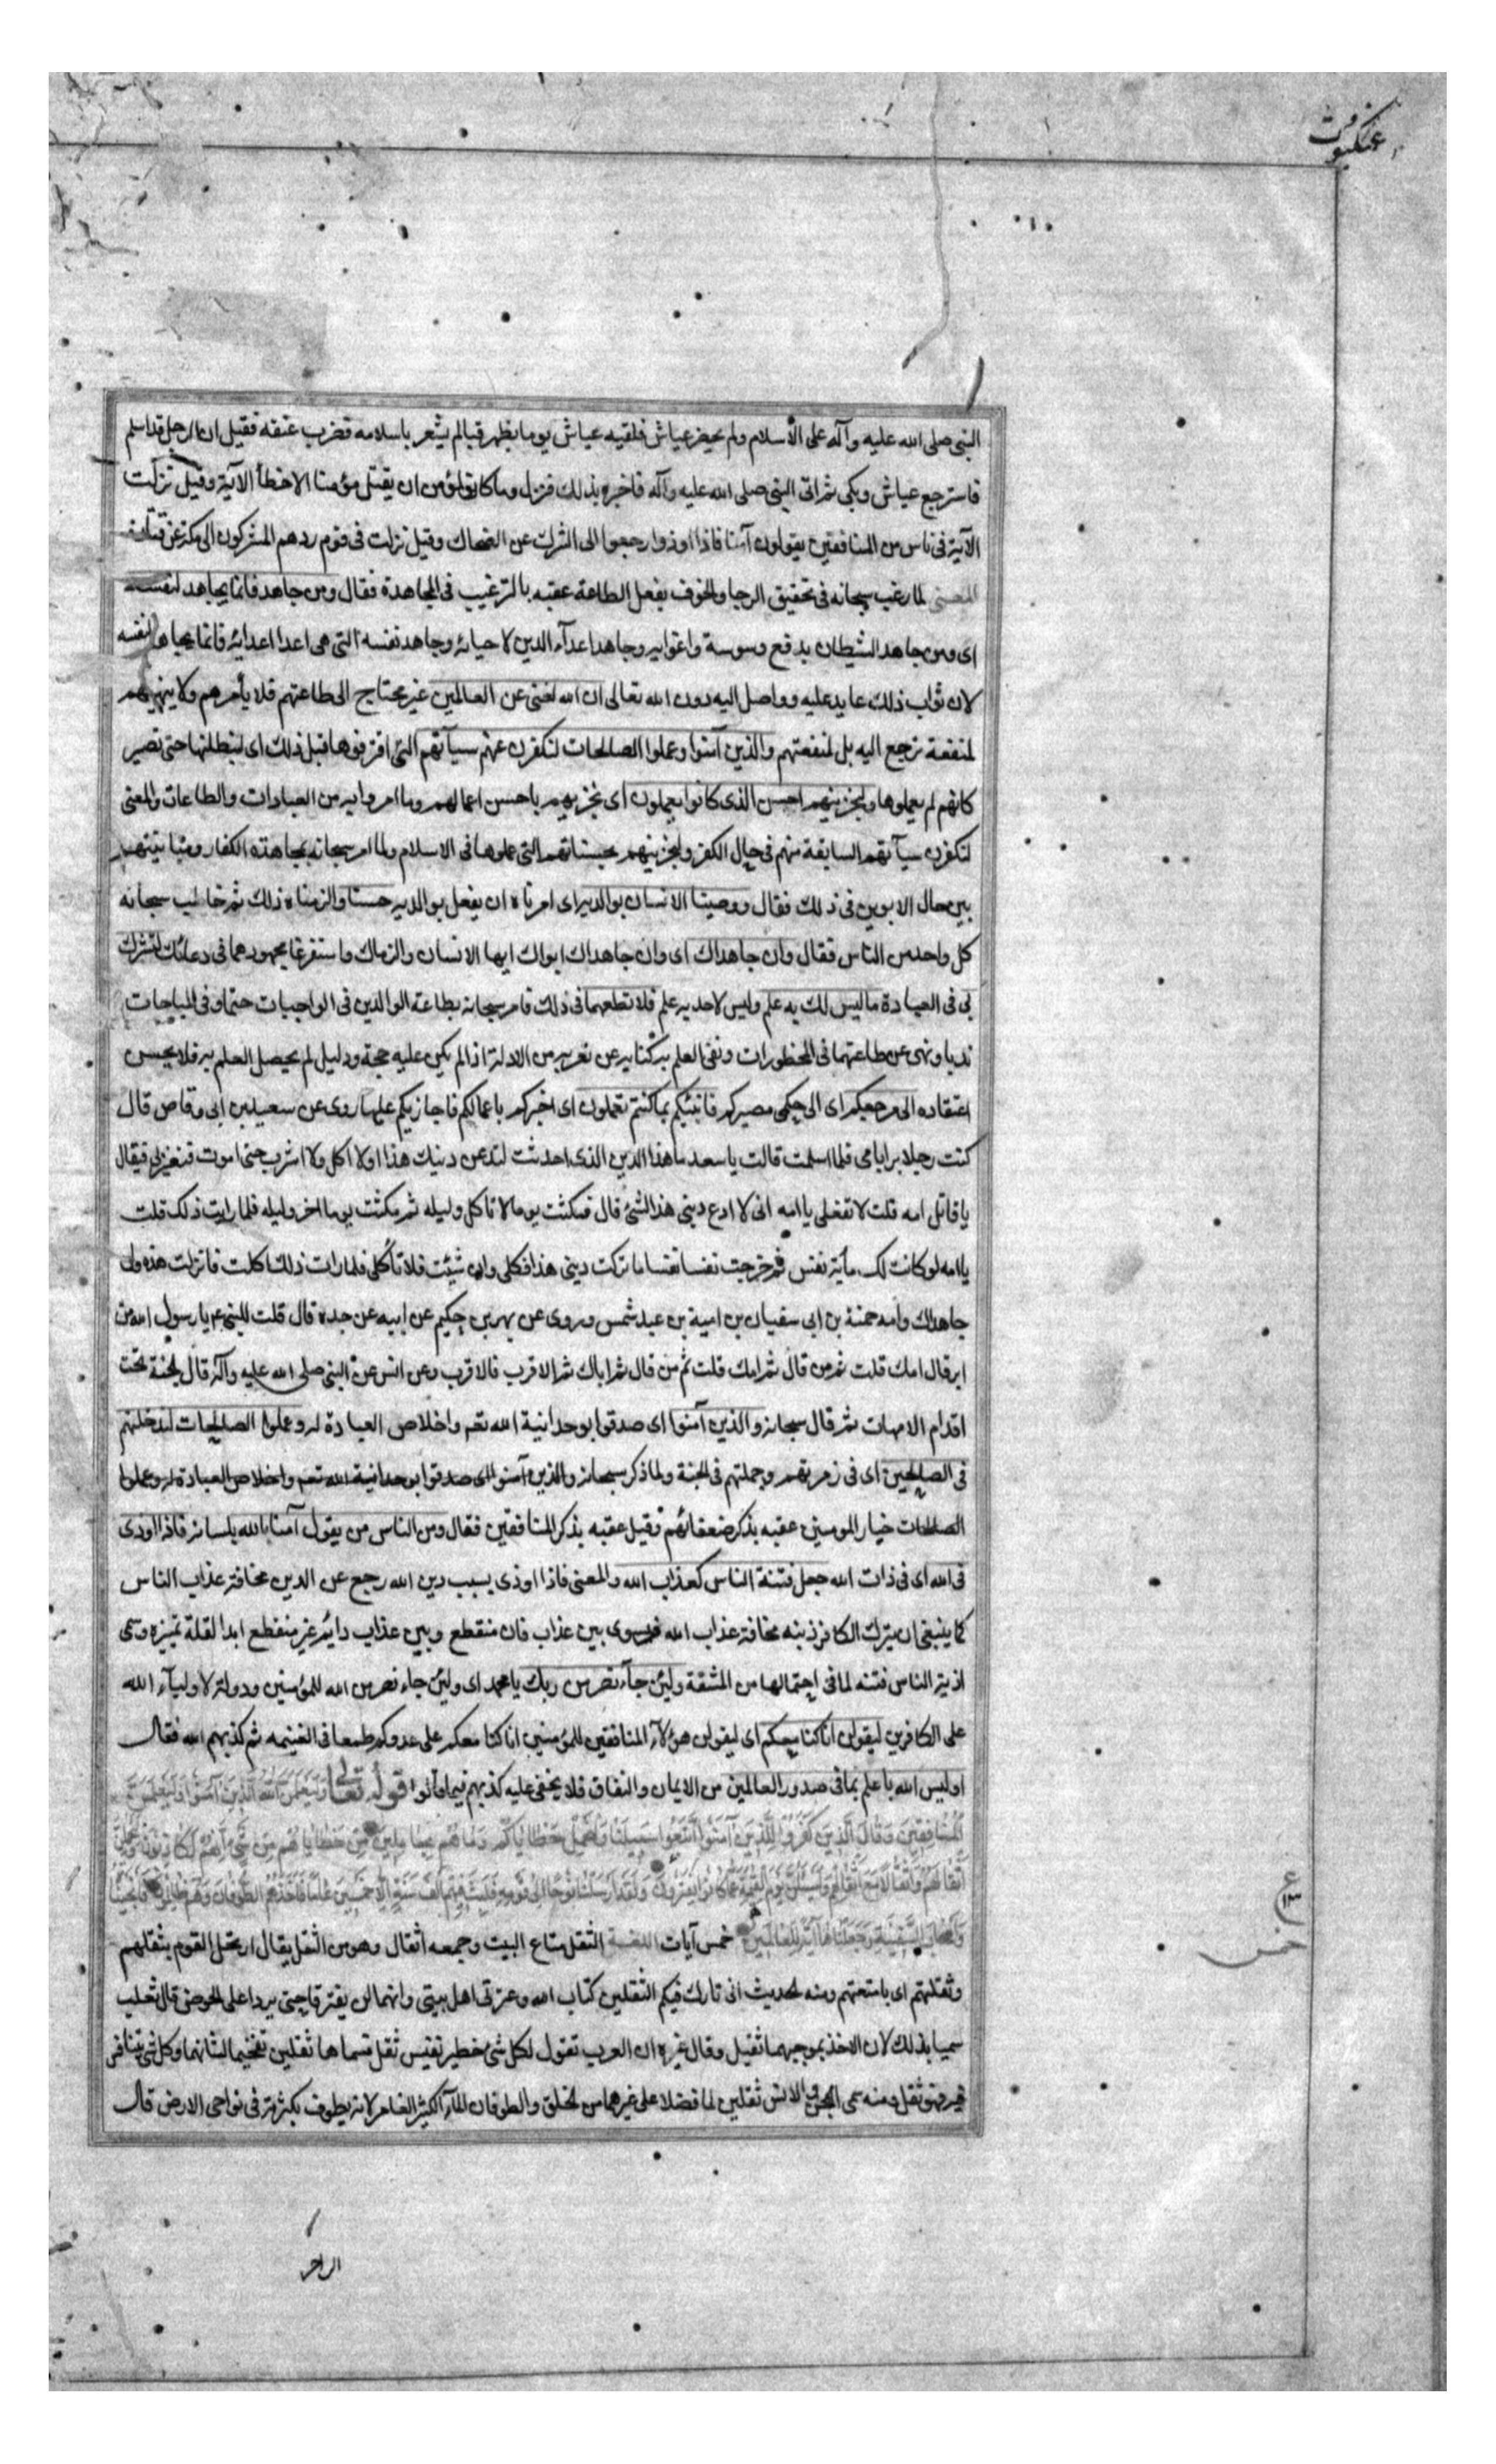 عنكبوت
النبی صلی الله علیه وآله علی الاسلام ولم یحضر عیاش فلقیه عیاش یوما بظهر قبا لم یشعر باسلامه فضرب عنقه فقیل ان الرجل قد اسلم
فاسترجع عیاش وبکی ثم اتی النبی صلی الله علیه وآله فاخبره بذلک فنزل وما کان لمؤمن ان یقتل مؤمنا الا خطأ الآیة وقیل نزلت
الآیة فی ناس من المنافقین یقولون آمنا فاذا اوذوا رجعوا الی الشرک عن الضحاک وقیل نزلت فی قوم ردهم المشرکون الی مکة عن قتادة
المعنی لما رغب سبحانه فی تحقیق الرجا والخوف بفعل الطاعة عقبه بالترغیب فی المجاهدة فقال ومن جاهد فانما یجاهد لنفسه
ای ومن جاهد الشیطان بدفع وسوسة واغوایه وجاهد اعدآء الدین لاحیائه وجاهد نفسه التی هی اعدا اعدائه فانما یجاهد لنفسه
لان ثواب ذلک عاید علیه وواصل الیه دون الله تعالی ان الله لغنی عن العالمین غیر محتاج الی طاعتهم فلا یأمرهم ولا ینهیهم
لمنفعة ترجع الیه بل لمنفعتهم والذین آمنوا وعملوا الصالحات لنکفرن عنهم سیآتهم التی اقترفوها قبل ذلک ای لنبطلنها حتی تصیر
کانهم لم یعملوها ولنجزینهم احسن الذی کانوا یعملون ای نجزیهم باحسن اعمالهم وما امروا به من العبادات والطاعات والمعنی
لنکفرن سیآتهم السابقة منهم فی حال الکفر ولنجزینهم بحسناتهم التی عملوها فی الاسلام ولما امر سبحانه بمجاهدة الکفار ومباینتهم
بین حال الابوین فی ذلک فقال ووصینا الانسان بوالدیه ای امرناه ان یفعل بوالدیه حسنا والزمناه ذلک ثم خاطب سبحانه
کل واحد من الناس فقال وان جاهداک ای وان جاهداک ابواک ایها الانسان والزماک واستفرغا مجهودهما فی دعائک لتشرک
بی فی العبادة ما لیس لک به علم ولیس لاحد به علم فلا تطعهما فی ذلک فامر سبحانه بطاعة الوالدین فی الواجبات حتما وفی المباحات
ندبا ونهی عن طاعتهما فی المحظورات ونفی العلم به کنایه عن تعریه من الادلة اذا لم یکن علیه حجة ودلیل لم یحصل العلم به فلا یحسن
اعتقاده الی مرجعکم ای الی حکمی مصیرکم فانبئکم بما کنتم تعملون ای اخبرکم باعمالکم فاجازیکم علیها روی عن سعید بن ابی وقاص قال
کنت رجلا برا بامی فلما اسلمت قالت یا سعد ما هذا الدین الذی احدثت لتدعن دینک هذا او لا اکل ولا اشرب حتی اموت فتعیر بی فیقال
یا قاتل امه قلت لا تفعلی یا امه انی لا ادع دینی هذا الشئ قال فمکثت یوما لا تاکل ولیله ثم مکثت یوما اخر ولیله فلما رایت ذلک قلت
یا امه لو کانت لک مأیة نفس فخرجت نفسا نفسا ما ترکت دینی هذا فکلی وان شئت فلا تأکلی فلما رات ذلک اکلت فانزلت هذه وان
جاهداک وامه حمنة بن ابی سفیان بن امیة بن عبد شمس وروی عن بهر بن حکیم عن ابیه عن جده قال قلت للنبی ع یا رسول الله من
ابر قال امک قلت ثم من قال ثم امک قلت ثم من قال ثم اباک ثم الاقرب فالاقرب وعن انس عن النبی صلی الله علیه وآله قال الجنة تحت
اقدام الامهات ثم قال سبحانه والذین آمنوا ای صدقوا بوحدانیة الله تعم واخلاص العبادة له وعملوا الصالحات لندخلنهم
فی الصالحین ای فی زمرتهم وجملتهم فی الجنة ولما ذکر سبحانه والذین آمنوا ای صدقوا بوحدانیة الله تعم واخلاص العبادة له وعملوا
الصالحات خیار المومنین عقبه بذکر ضعفائهم وقیل عقبه بذکر المنافقین فقال ومن الناس من یقول آمنا بالله بلسانه فاذا اوذی
فی الله ای فی ذات الله جعل فتنة الناس کعذاب الله والمعنی فاذا اوذی بسبب دین الله رجع عن الدین مخافة عذاب الناس
کما ینبغی ان یترک الکافر دینه مخافة عذاب الله فیسوی بین عذاب فان منقطع وبین عذاب دائم غیر منقطع ابدا لقلة تمیزه وسمی
اذیة الناس فتنه لما فی احتمالها من المشقة ولئن جآء نصر من ربک یا محمد ای ولئن جاء نصر من الله للمؤمنین ودولة لاولیآء الله
علی الکافرین لیقولن انا کنا معکم ای لیقولن هؤلآء المنافقین للمؤمنین انا کنا معکم علی عدوکم طمعا فی الغنیمه ثم کذبهم الله فقال
اولیس الله باعلم بما فی صدور العالمین من الایمان والنفاق فلا یخفی علیه کذبهم فیما قالوا قوله تعالی وَلَیَعْلَمَنَّ اللَّهُ الَّذِینَ آمَنُوا وَلَیَعْلَمَنَّ
الْمُنَافِقِینَ وَقَالَ الَّذِینَ کَفَرُوا لِلَّذِینَ آمَنُوا اتَّبِعُوا سَبِیلَنَا وَلْنَحْمِلْ خَطَایَاکُمْ وَمَا هُمْ بِحَامِلِینَ مِنْ خَطَایَاهُمْ مِنْ شَیْءٍ إِنَّهُمْ لَکَاذِبُونَ وَلَیَحْمِلُنَّ
أَثْقَالَهُمْ وَأَثْقَالًا مَعَ أَثْقَالِهِمْ وَلَیُسْئَلُنَّ یَوْمَ الْقِیمَةِ عَمَّا کَانُوا یَفْتَرُونَ وَلَقَدْ أَرْسَلْنَا نُوحًا إِلَی قَوْمِهِ فَلَبِثَ فِیهِمْ أَلْفَ سَنَةٍ إِلَّا خَمْسِینَ عَامًا فَأَخَذَهُمُ الطُّوفَانُ وَهُمْ ظَالِمُونَ فَأَنْجَیْنَاهُ
وَأَصْحَابَ السَّفِینَةِ وَجَعَلْنَاهَا آیَةً لِلْعَالَمِینَ خمس آیات اللغة الثقل متاع البیت وجمعه اثقال وهو من الثقل یقال ارتحل القوم بثقلهم
وثقلتهم ای بامتعتهم ومنه الحدیث انی تارک فیکم الثقلین کتاب الله وعترتی اهل بیتی وانهما لن یفترقا حتی یردا علی الحوض قال ثعلب
سمیا بذلک لان الاخذ بموجبهما ثقیل وقال غیره ان العرب تقول لکل شئ خطیر نفیس ثقل فسماها ثقلین تفخیما لشانهما وکل شئ یتنافس
فیه فهو ثقل ومنه سمی الجن والانس ثقلین لما فضلا علی غیرهما من الخلق والطوفان الماء الکثیر الغامر لانه یطوف بکثرته فی نواحی الارض قال
ع
۱۳
خمس
الراجز